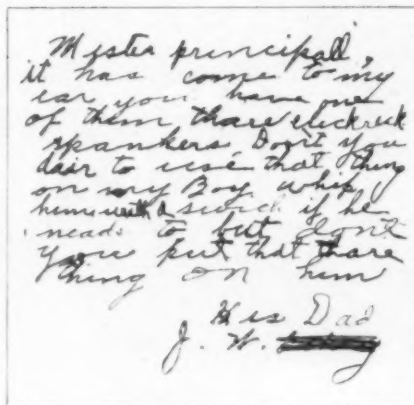 Mister principall,
it has come to my
ear you have one
of them thare elickrick
spankers Don't you
dair to use that thing
on my Boy whip
him with a swich if he
neads to but don't
you put that thare
thing on him
His Dad
J. W.